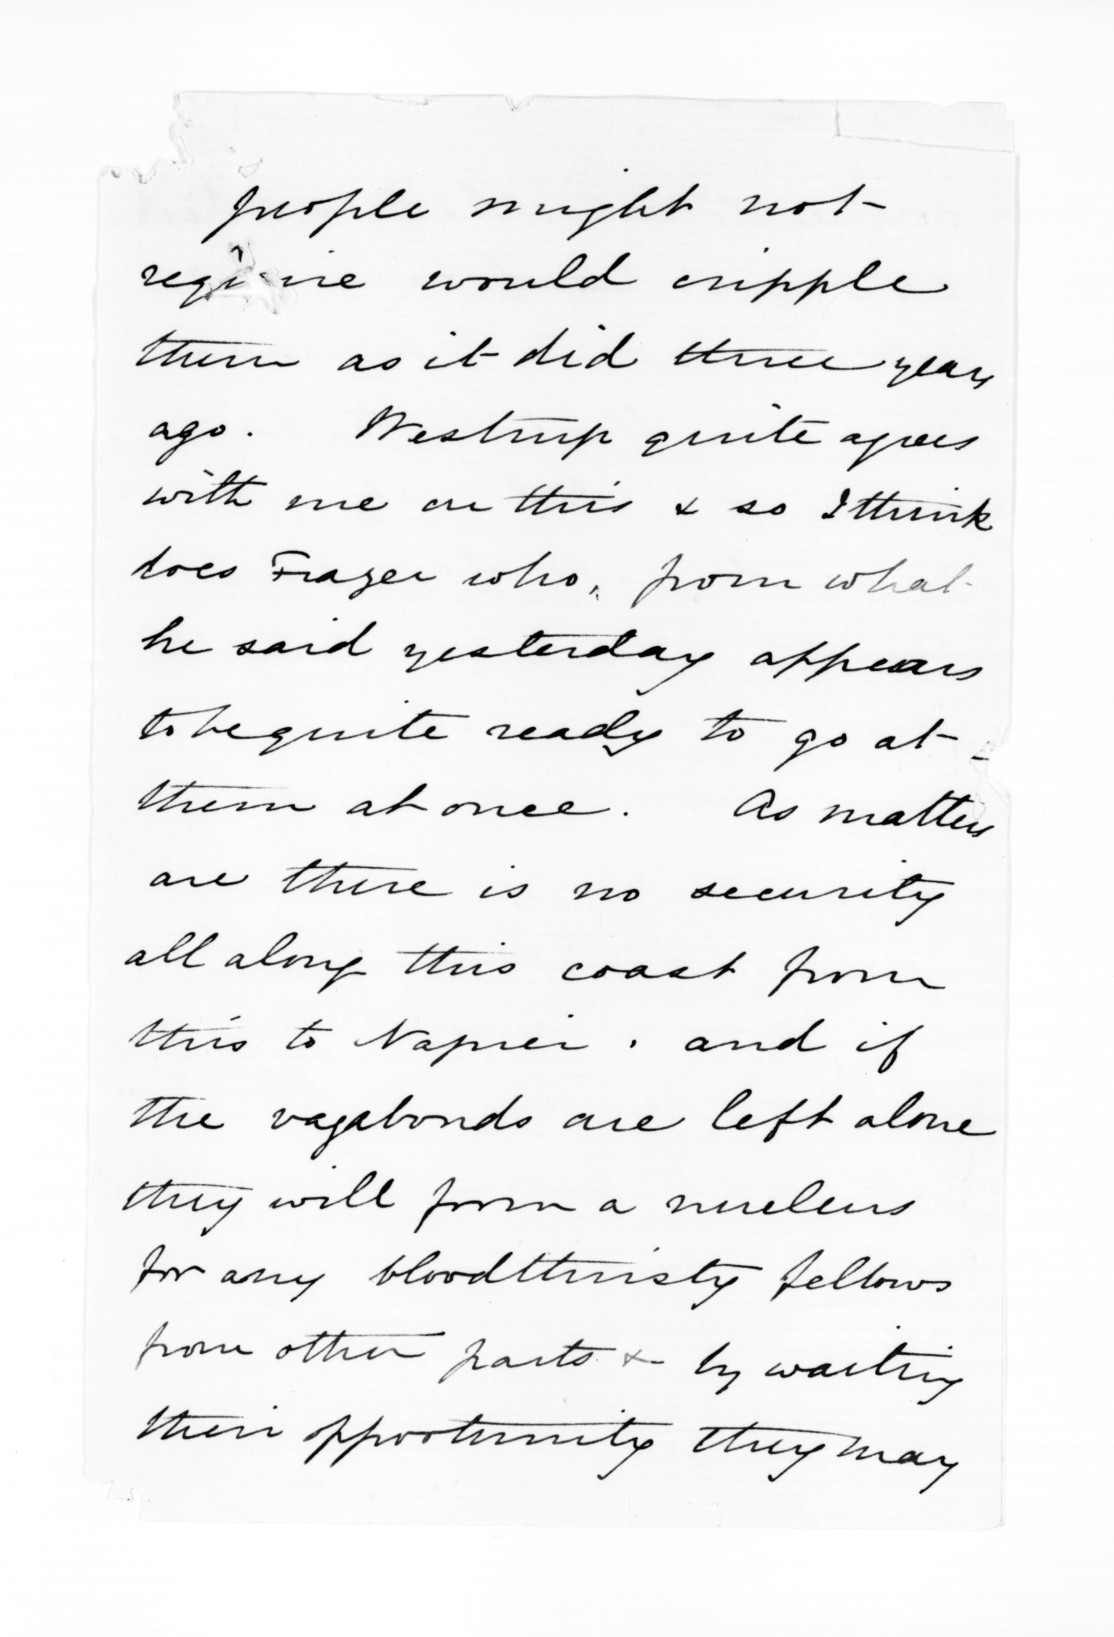 people might not
would cripple
them as it did three years
ago. Westrup quite agrees
with me on this & so I think
does Frazer who, from what
he said yesterday appears
to be quite ready to go at
them at once. As matters
are there is no security
all along this coast from
this to Napier. and if
the vagabonds are left alone
they will form a nucleus
for any bloodthirsty fellows
from other parts & by waiting
their opportunity they may